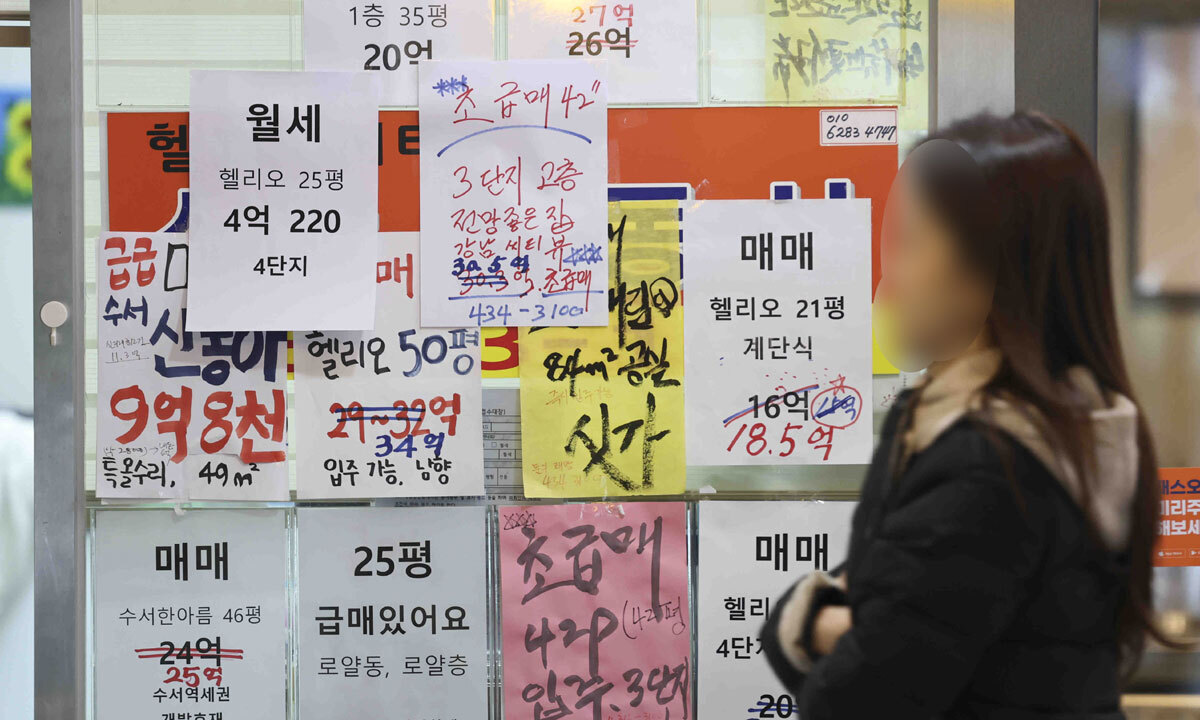 1층 35평
20억
27억
26억
010
6283 4747
월세
헬리오 25평
4억 220
4단지
초급매 42"
3단지 고층
전망좋은 집
강남 씨티 뷰
30.5억
초급매
434-3100
급급
수서
신동아
9억8천
특올수리, 49m²
매
헬리오 50평
29~32억
34억
입주 가능, 남향
84m² 공실
싯가
매매
헬리오 21평
계단식
16억
18.5억
매매
수서한아름 46평
24억
25억
수서역세권
개발호재
25평
급매있어요
로얄동, 로얄층
초급매
42P (42평
입주. 3단지
매매
헬리
4단
20